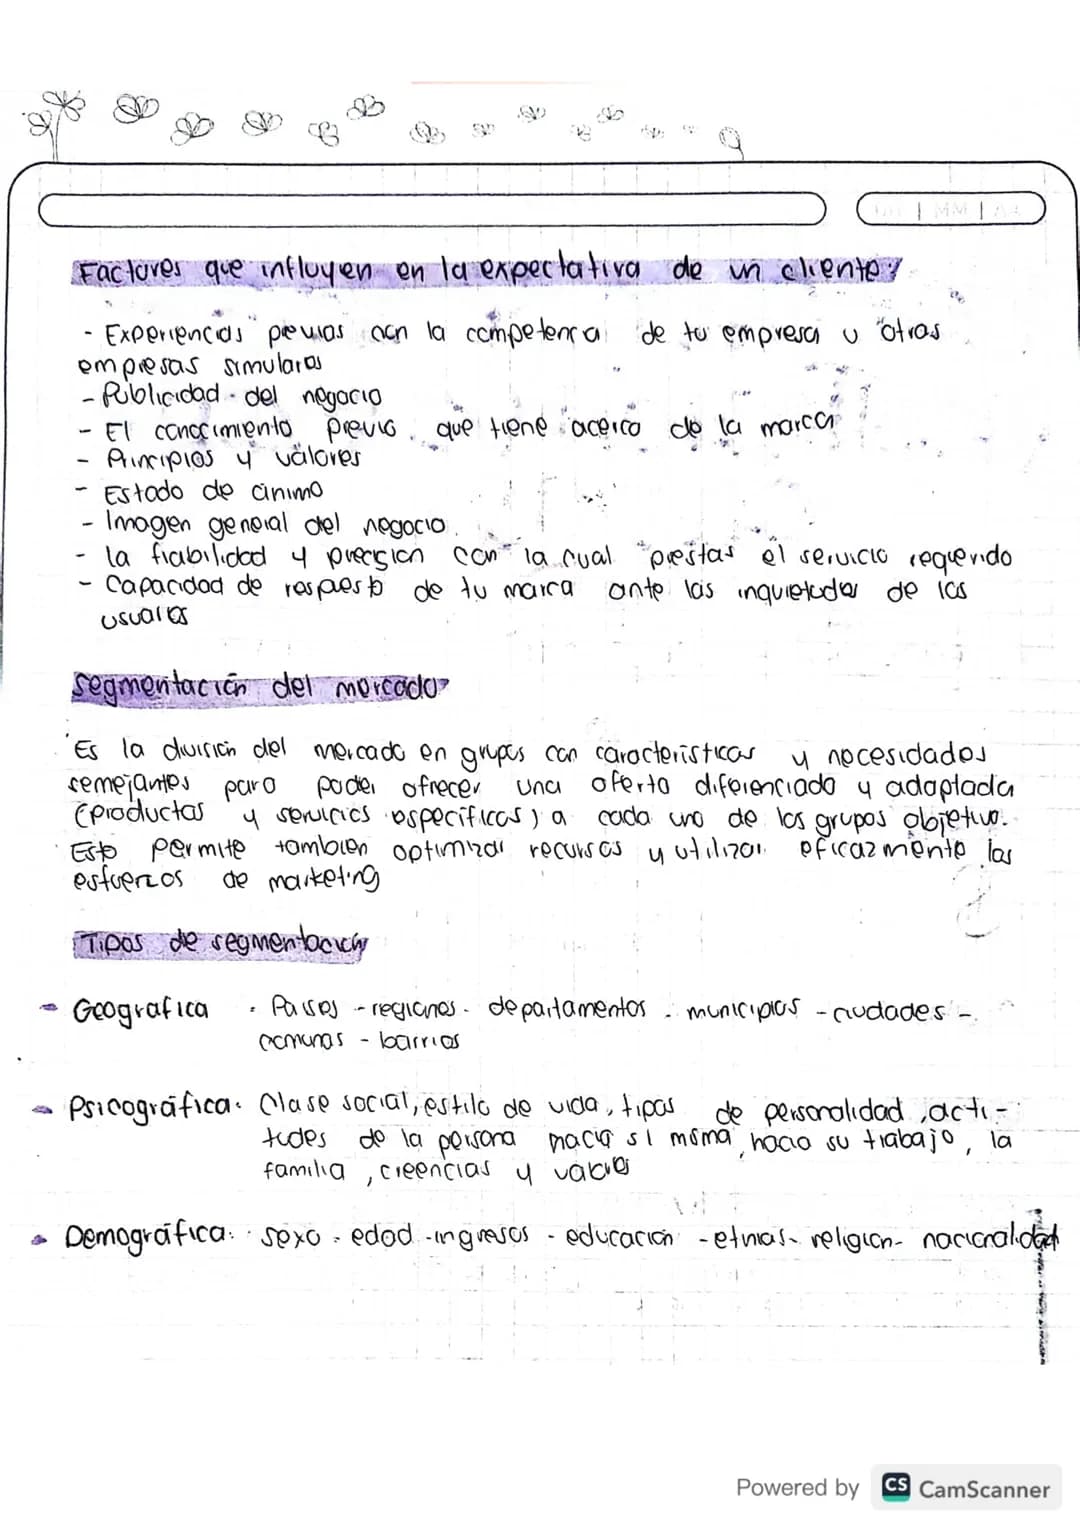 DD | MM | AA
Factores que influyen en la expectativa de un cliente:
- Experiencias previas con la competencia de tu empresa u otras
empresas similares
- Publicidad del negocio
- El conocimiento previo que tiene acerca de la marca
- Principios y valores
- Estado de ánimo
- Imagen general del negocio
- la fiabilidad y precisión con la cual prestas el servicio requerido
- Capacidad de respuesta de tu marca ante las inquietudes de los
usuarios
segmentación del mercado
Es la división del mercado en grupos con características y necesidades
semejantes para poder ofrecer una oferta diferenciada y adaptada
(productos y servicios específicos) a cada uno de los grupos objetivo.
Esto permite tambien optimizar recursos y utilizar eficazmente los
esfuerzos de marketing
Tipos de segmentación
- Geografica : Paises - regiones - departamentos - municipios - ciudades -
comunas - barrios
- Psicográfica: Clase social, estilo de vida, tipos de personalidad, acti-
tudes de la persona hacia si misma, hacia su trabajo, la
familia, creencias y valores
- Demográfica: sexo - edad - ingresos - educación - etnias - religion - nacionalidad
Powered by CS CamScanner